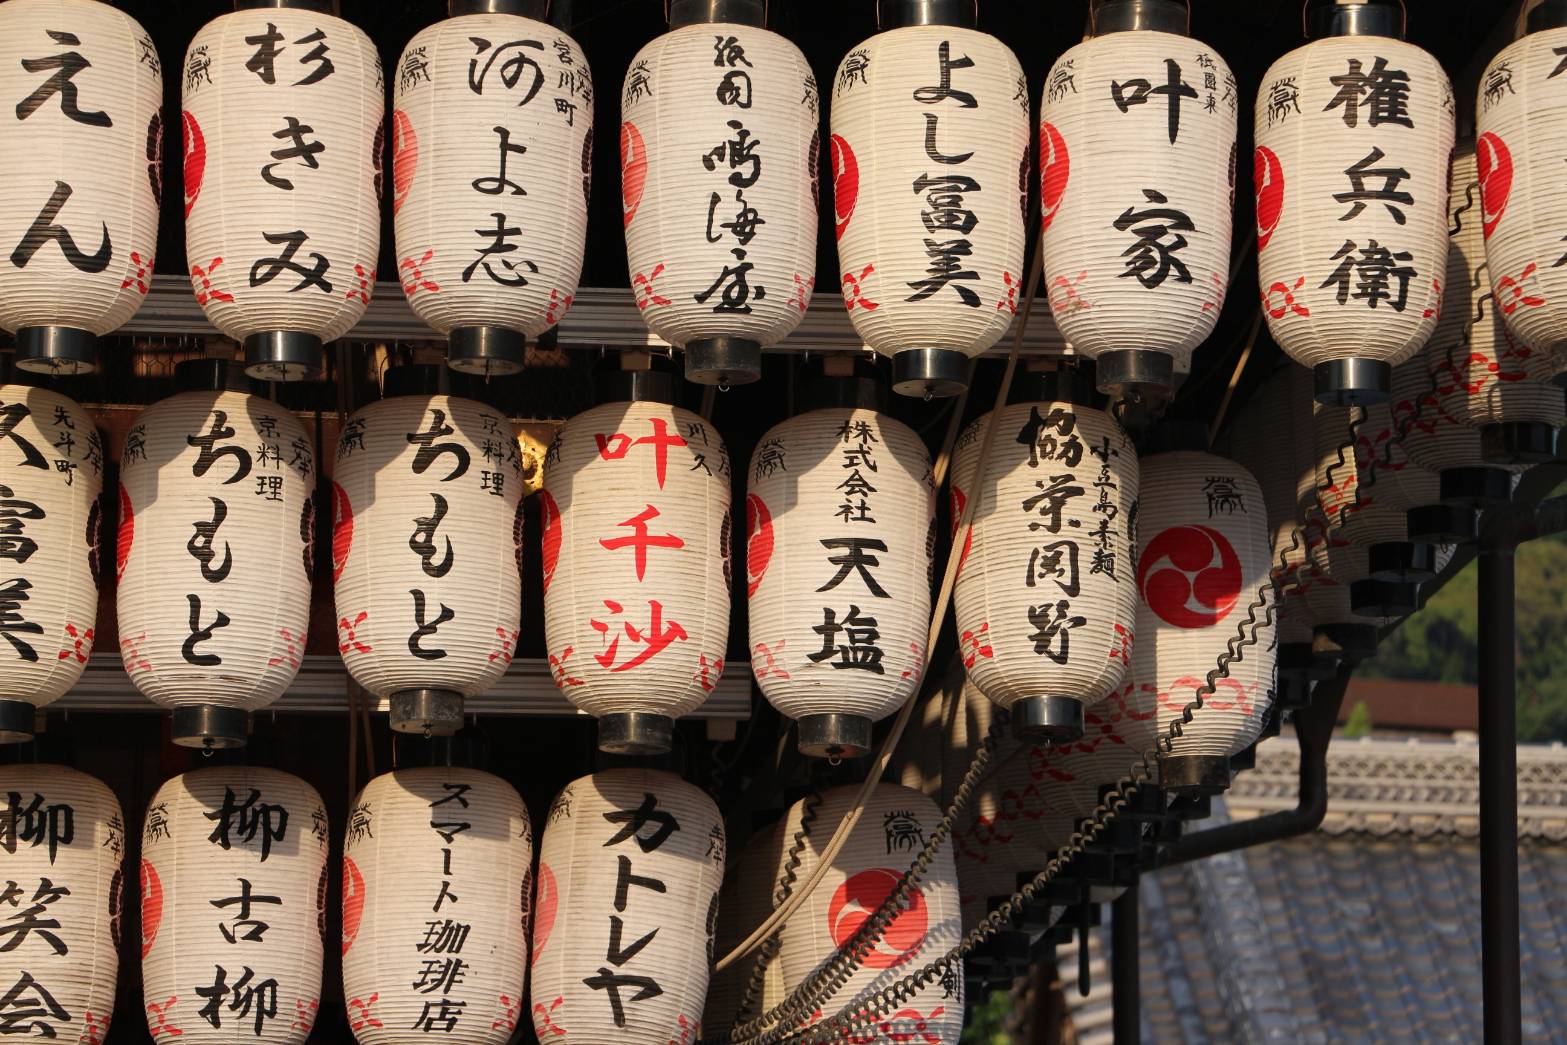 えん
杉きみ
宮川町
河よ志
祇園
鳴海屋
よし冨美
祇園東
叶家
権兵衛
先斗町
富美
京料理
ちもと
京料理
ちもと
川久
叶千沙
株式会社
天塩
小豆島素麺
協栄岡野
柳笑会
柳古柳
スマート珈琲店
カトレヤ